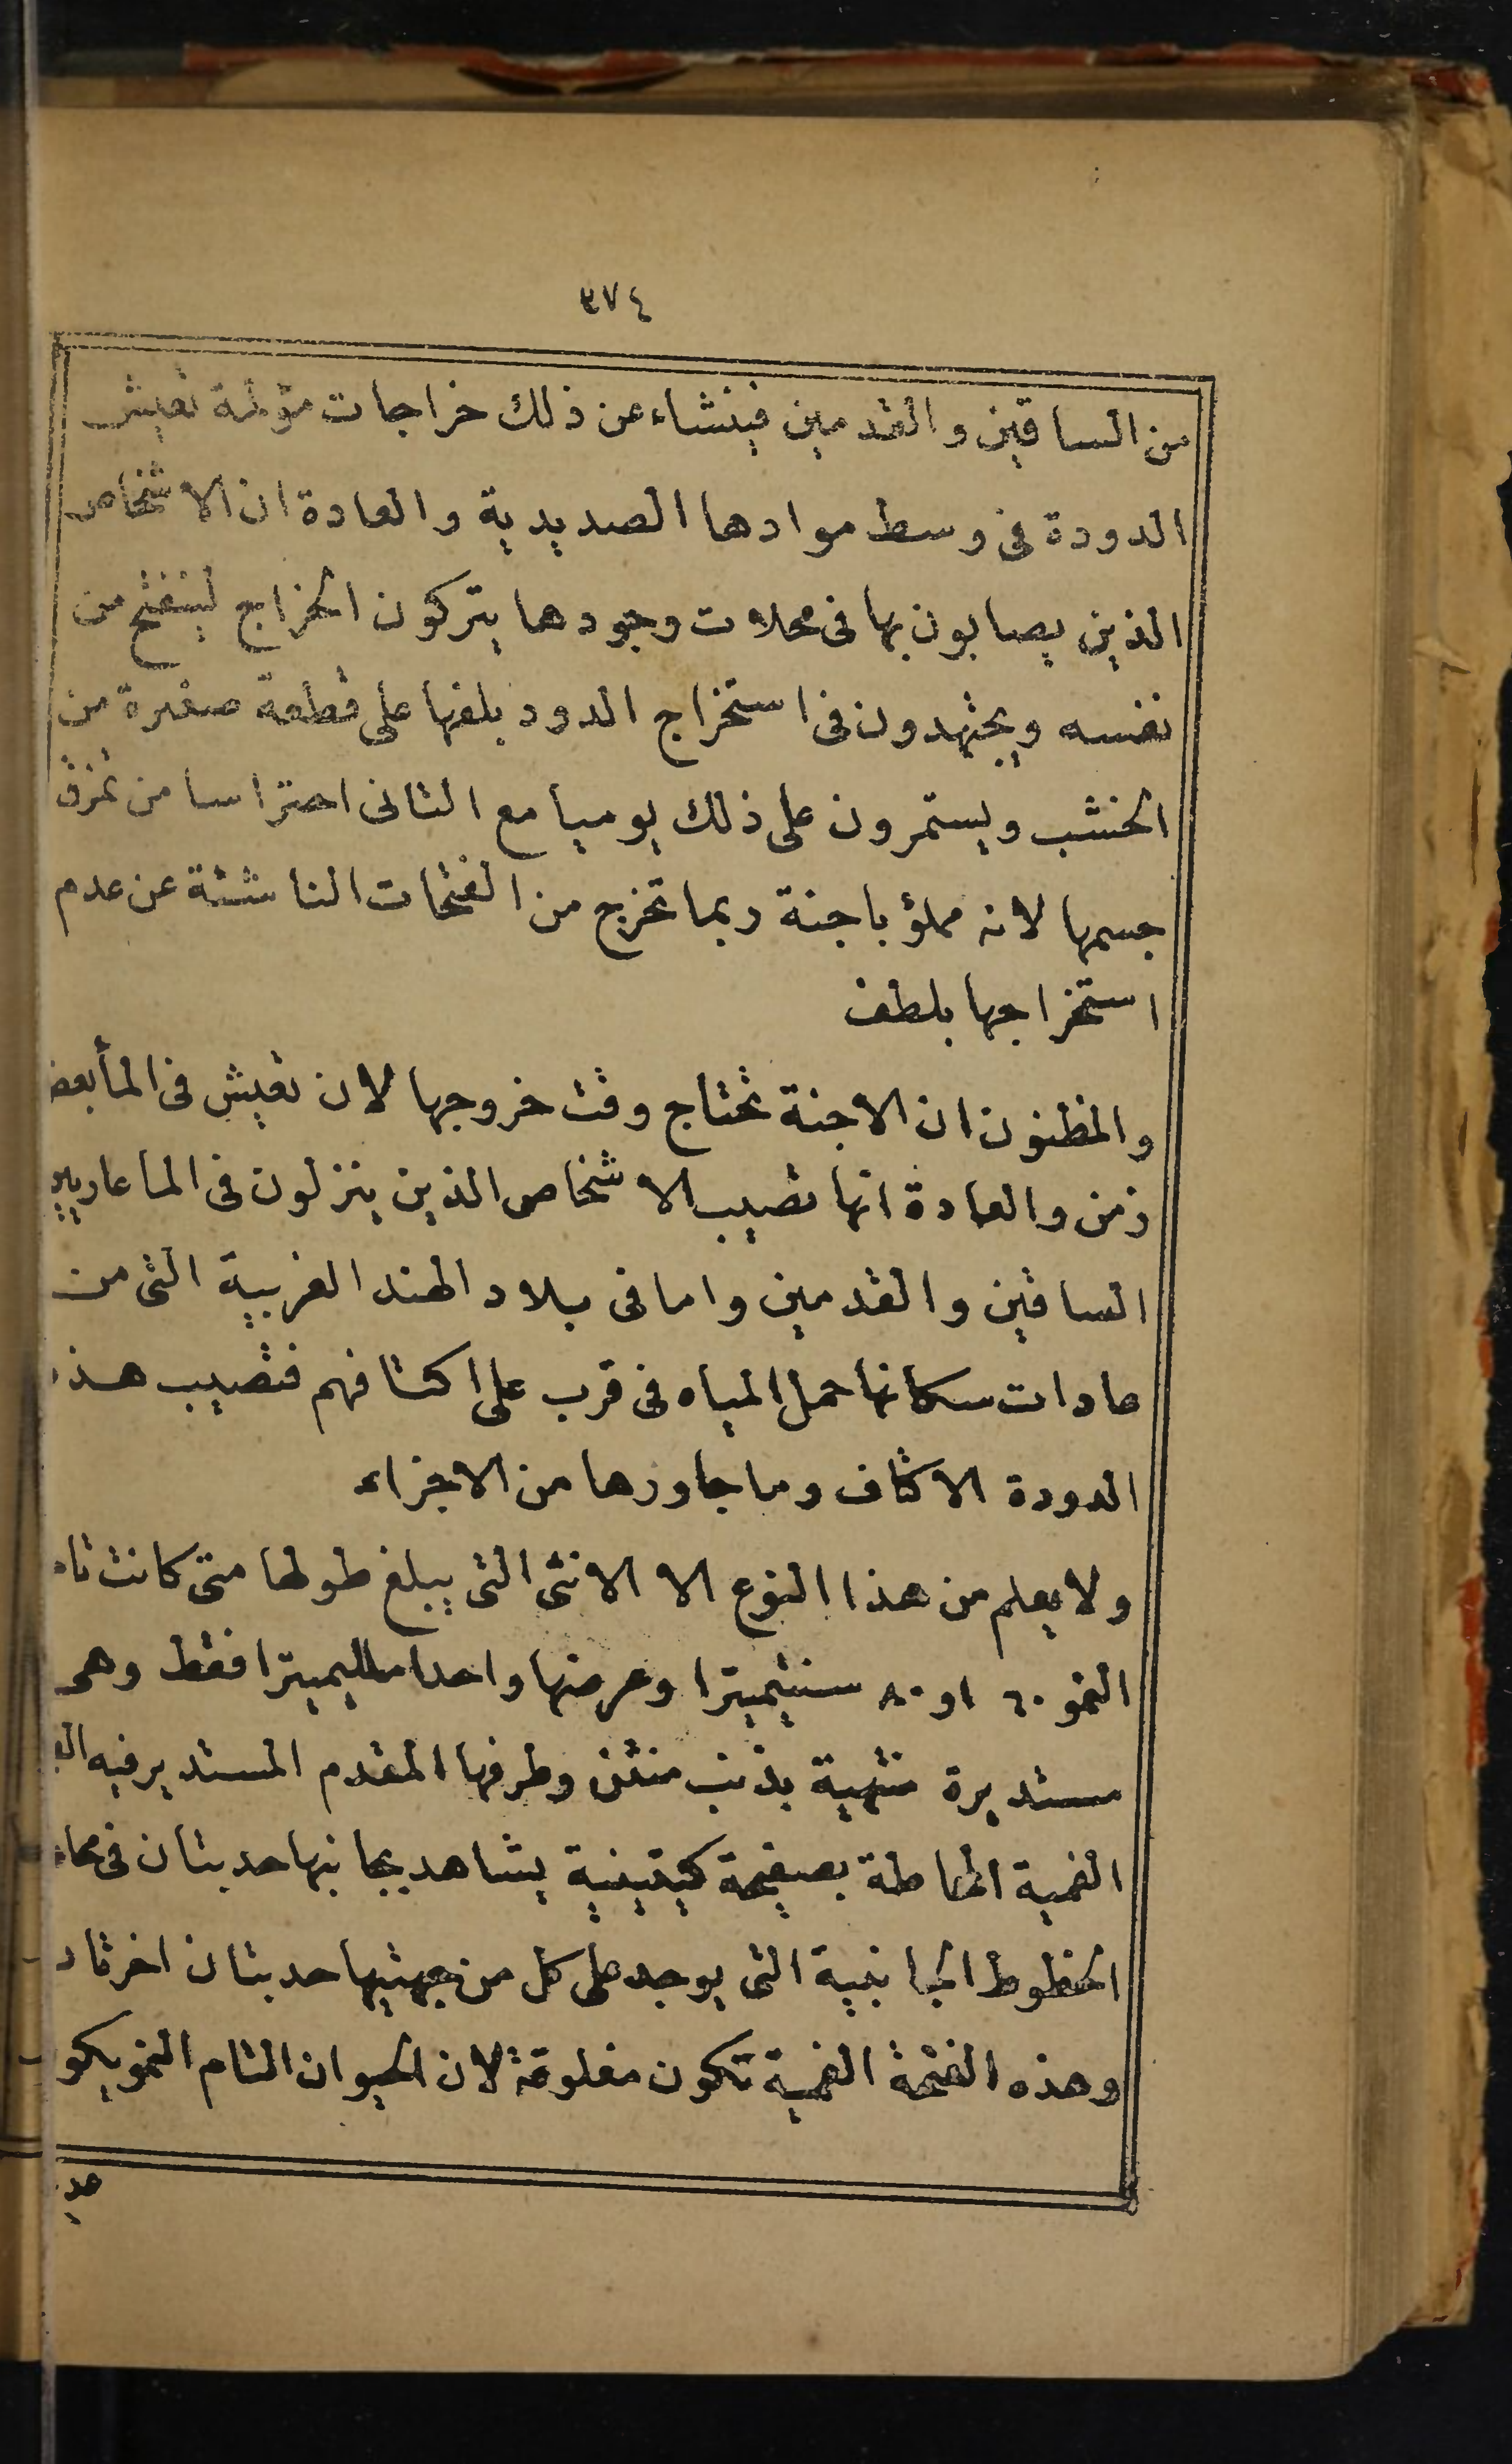 ٣٧٤
من الساقين والقدمين فينشاء عن ذلك خراجات مؤلمة تعيش
الدودة فى وسط موادها الصديدية والعادة ان الاشخاص
الذين يصابون بها فى محلات وجودها يتركون الخراج لينفتح من
نفسه ويجتهدون فى استخراج الدود بلفها على قطعة صغيرة من
الخشب ويستمرون على ذلك يوميا مع التانى احتراسا من تمزق
جسمها لانه مملؤ باجنة ربما تخرج من الفتحات الناشئة عن عدم
استخراجها بلطف
والمظنون ان الاجنة تحتاج وقت خروجها لان تعيش فى المأ بعض
زمن والعادة انها تصيب الاشخاص الذين ينزلون فى الما عاريين
الساقين والقدمين واما فى بلاد الهند الغربية التى من
عادات سكانها حمل المياه فى قرب على اكتافهم فتصيب هذه
الدودة الاكتاف وما جاورها من الاجزاء
ولا يعلم من هذا النوع الا الانثى التى يبلغ طولها متى كانت
النمو ٦٠ او ٨٠ سنتيميترا وعرضها واحدا ملليميترا فقط وهى
مستديرة منتهية بذنب منثن وطرفها المقدم المستدير فيه
الفمية المحاطة بصفيحة كيتينية يشاهد بجانبها حدبتان فى
الخطوط الجانبية التى يوجد على كل من جهتيها حدبتان
وهذه الفتحة الفمية تكون مغلوقة لان الحيوان التام النمو